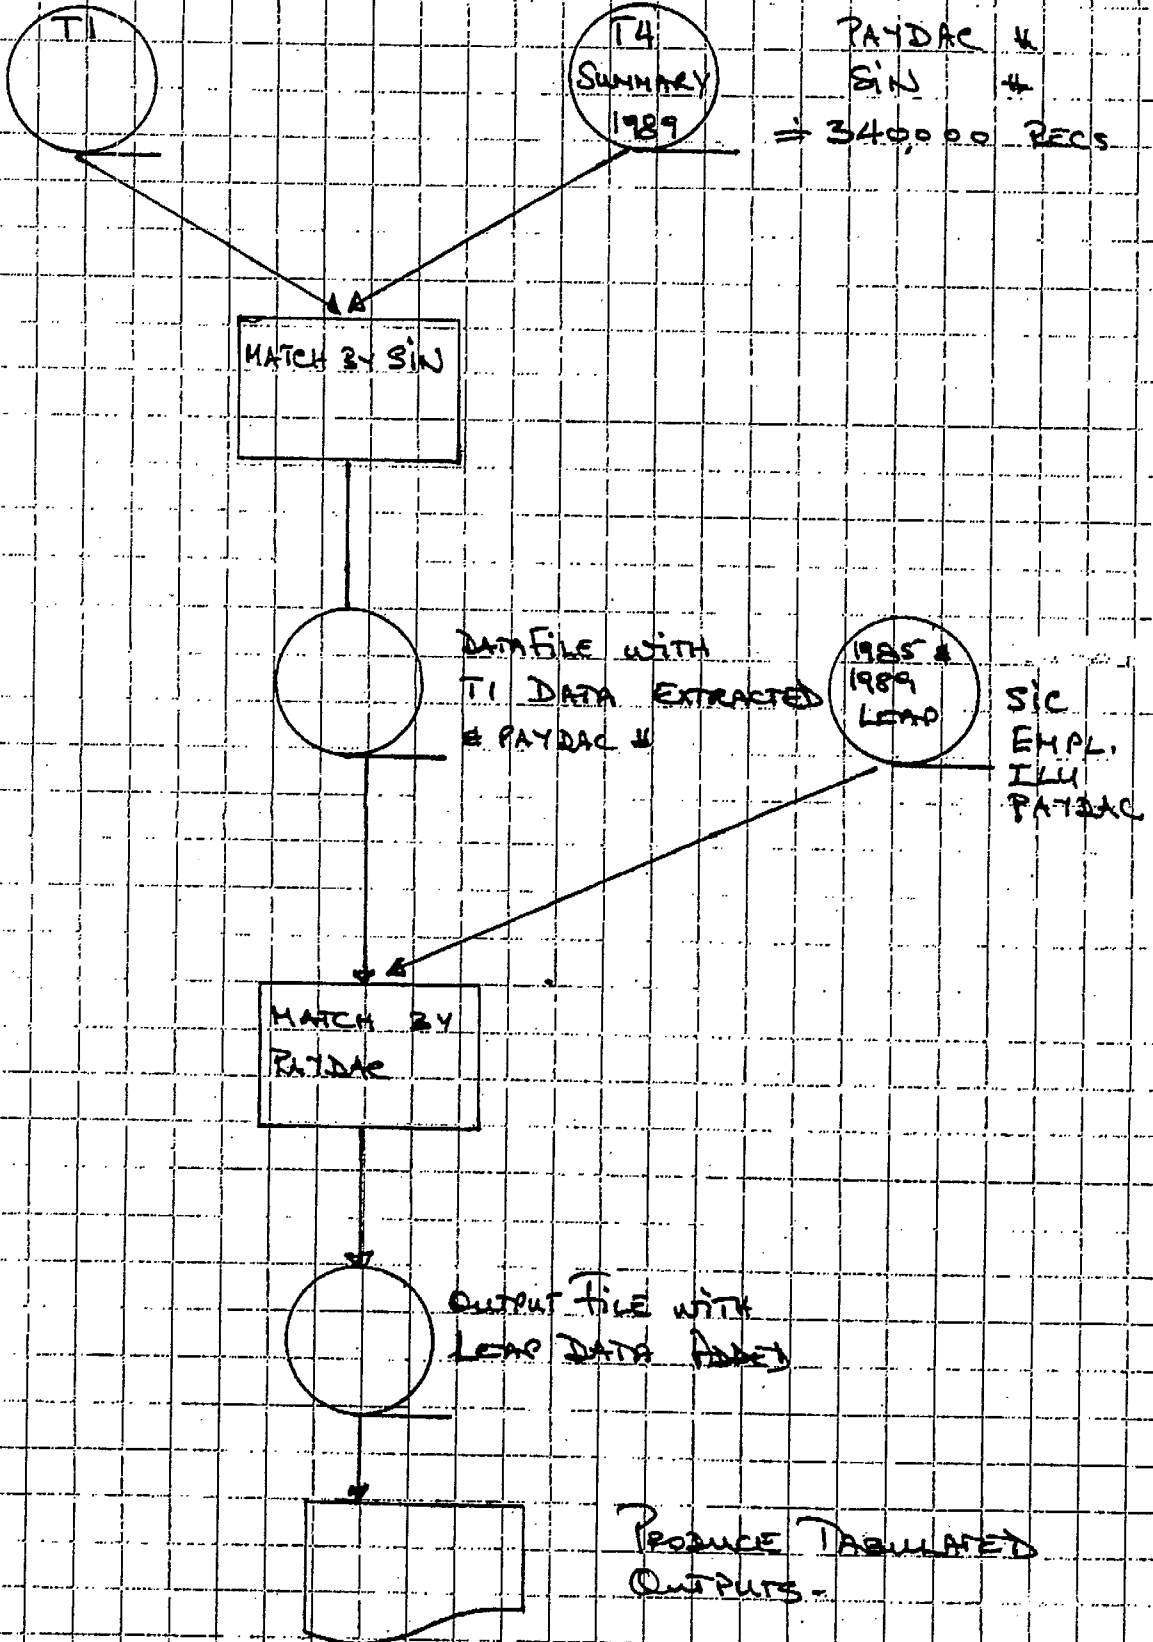 T1
T4
SUMMARY
1989
PAYDAC #
SIN #
≐ 340,000 RECS
MATCH BY SIN
DATAFILE WITH
T1 DATA EXTRACTED
& PAYDAC #
1985 &
1989
LEAP
SIC
EMPL.
ILU
PAYDAC
MATCH BY
PAYDAC
OUTPUT FILE WITH
LEAP DATA ADDED
PRODUCE TABULATED
OUTPUTS-